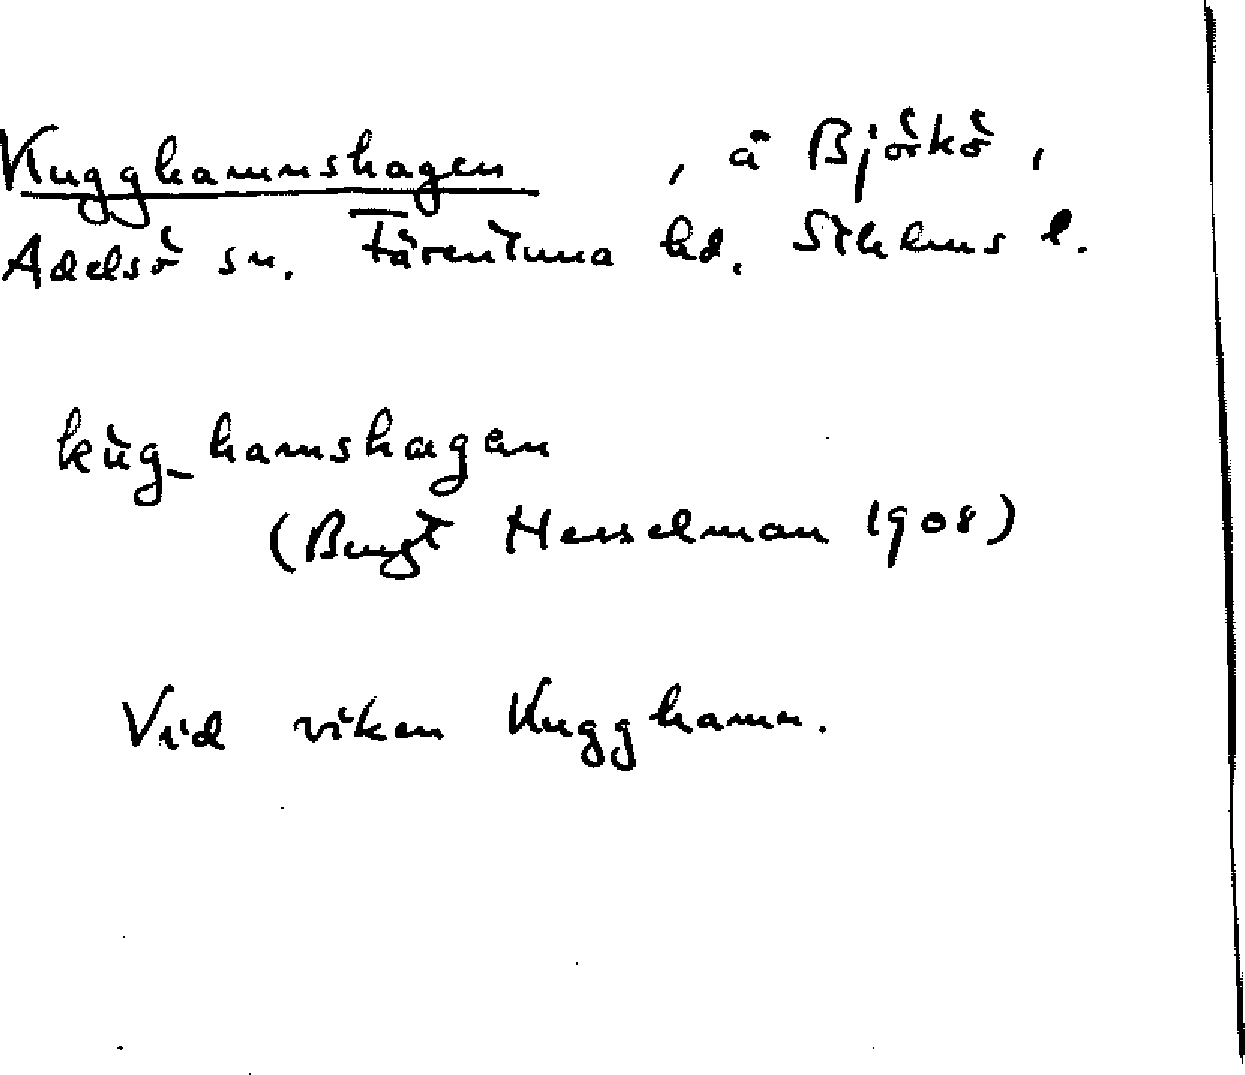 Kugghamnshagen , å Björkö ,
Adelsö sn. Färentuna hd. Sthlms l.
kùg_hamshagen
(Bengt Hesselman 1908)
Vid viken Kugghamn.